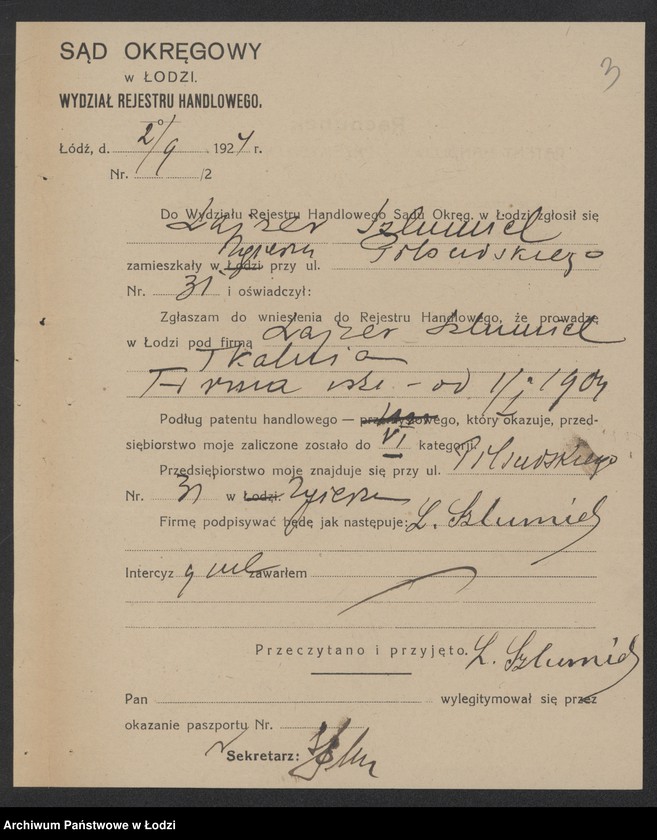 SĄD OKRĘGOWY
w ŁODZI.
WYDZIAŁ REJESTRU HANDLOWEGO.
3
Łódź, d. 2/9 1924 r.
Nr. /2
Do Wydziału Rejestru Handlowego Sądu Okręg. w Łodzi zgłosił się
Lajzer Szlumiel
zamieszkały w Łodzi Zgierzu przy ul. Piłsudskiego
Nr. 31 i oświadczył:
Zgłaszam do wniesienia do Rejestru Handlowego, że prowadzę
w Łodzi pod firmą Lajzer Szlumiel
Tkalnia
Firma istn. - od 1/I 1909
Podług patentu handlowego — przemysłowego, który okazuje, przed-
siębiorstwo moje zaliczone zostało do VI kategorji.
Przedsiębiorstwo moje znajduje się przy ul. Piłsudskiego
Nr. 31 w Łodzi. Zgierzu
Firmę podpisywać będę jak następuje: L. Szlumiel
Intercyz nie zawarłem
Przeczytano i przyjęto. L. Szlumiel
Pan wylegitymował się przez
okazanie paszportu Nr.
Sekretarz:
Archiwum Państwowe w Łodzi